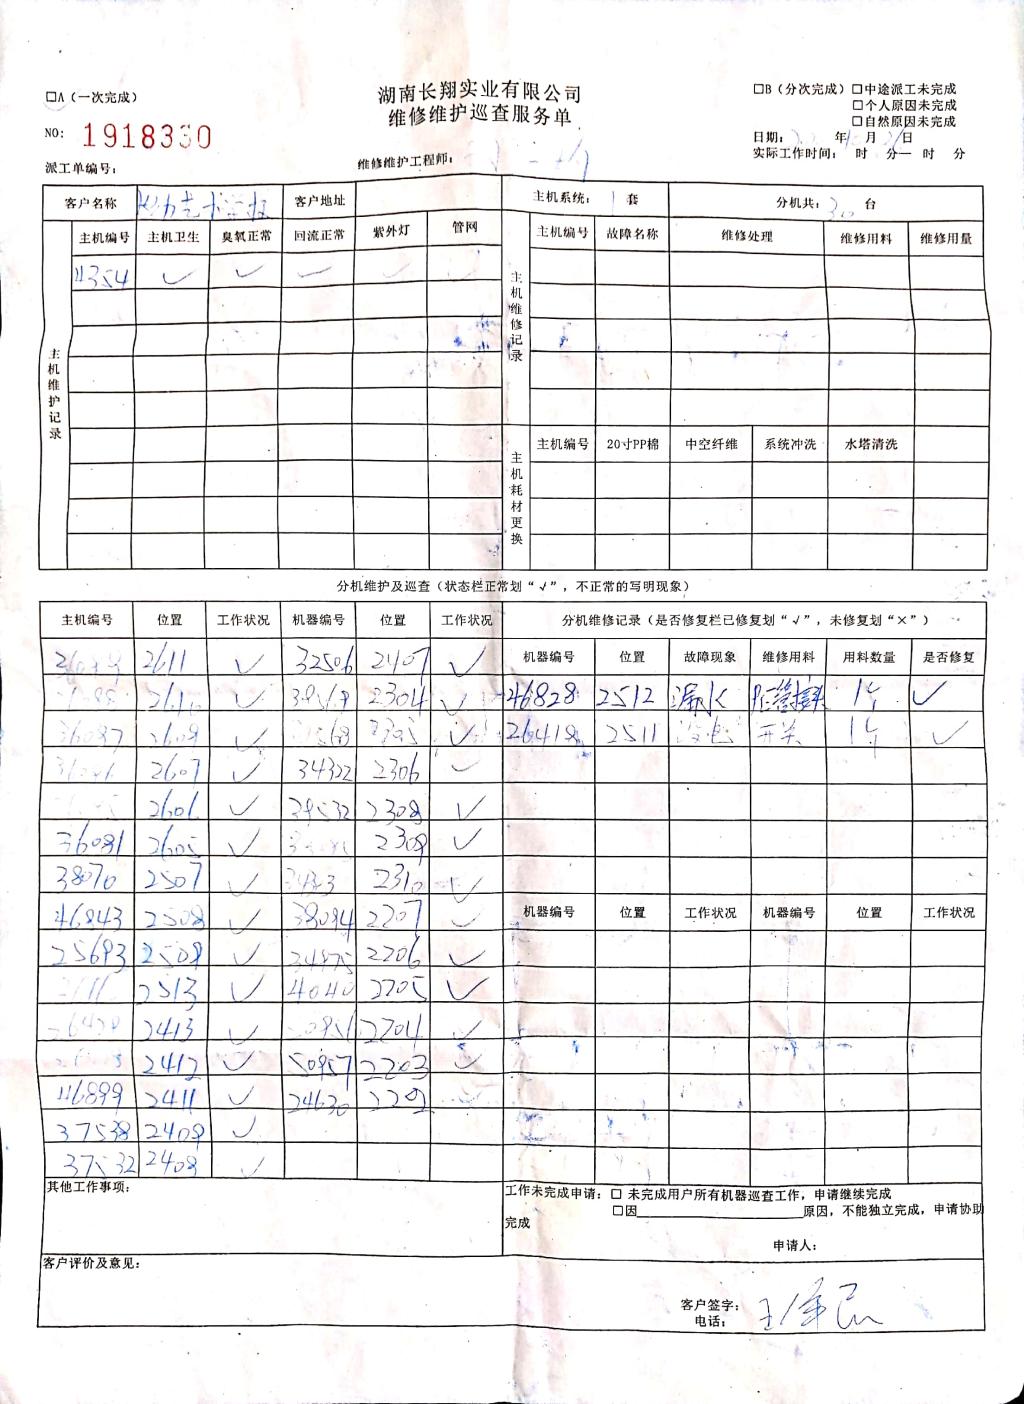 □A（一次完成）
湖南长翔实业有限公司
维修维护巡查服务单
□B（分次完成）□中途派工未完成
□个人原因未完成
□自然原因未完成
NO: 1918330
日期： 年 月 日
实际工作时间： 时 分— 时 分
派工单编号：
维修维护工程师：
客户名称 客户地址 主机系统：1套 分机共：30台
主机编号 主机卫生 臭氧正常 回流正常 紫外灯 管网 主机编号 故障名称 维修处理 维修用料 维修用量
4354 ✓ ✓ ✓ ✓ ✓
主机维护记录
主机维修记录
主机编号 20寸PP棉 中空纤维 系统冲洗 水塔清洗
主机耗材更换
分机维护及巡查（状态栏正常划“√”，不正常的写明现象）
主机编号 位置 工作状况 机器编号 位置 工作状况 分机维修记录（是否修复栏已修复划“√”，未修复划“×”）
机器编号 位置 故障现象 维修用料 用料数量 是否修复
2611 ✓ 32506 2407 ✓
✓ 2304 ✓ 46828 2512 漏水 PE管接头 1个 ✓
✓ ✓ 26418 2511 开关 1个 ✓
2607 ✓ 34322 2306 ✓
2606 ✓ 2308 ✓
36081 2605 ✓ 2309 ✓
38070 2507 ✓ 2310 ✓
46843 2508 ✓ 38094 2207 ✓
机器编号 位置 工作状况 机器编号 位置 工作状况
25693 2509 ✓ 24875 2206 ✓
2513 ✓ 4040 2205 ✓
2413 ✓ 2204 ✓
2412 ✓ 50957 2203 ✓
46899 2411 ✓ 24630 2202
37538 2409 ✓
37532 2408 ✓
其他工作事项：
工作未完成申请：□ 未完成用户所有机器巡查工作，申请继续完成
□因 原因，不能独立完成，申请协助
完成
申请人：
客户评价及意见：
客户签字：
电话：